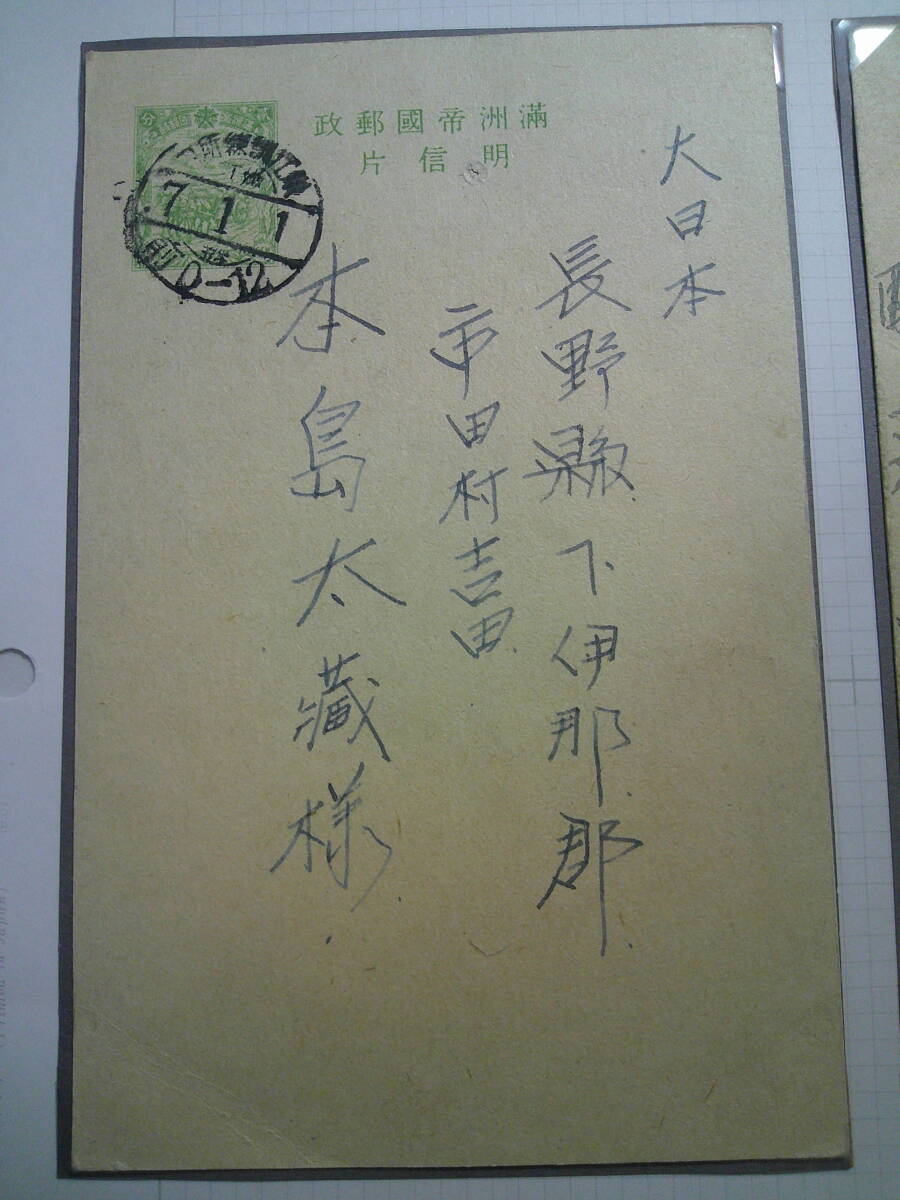 滿洲帝國郵政
明信片
大日本
長野縣下伊那郡
市田村吉田
本島太藏様
7.1.1
0-12